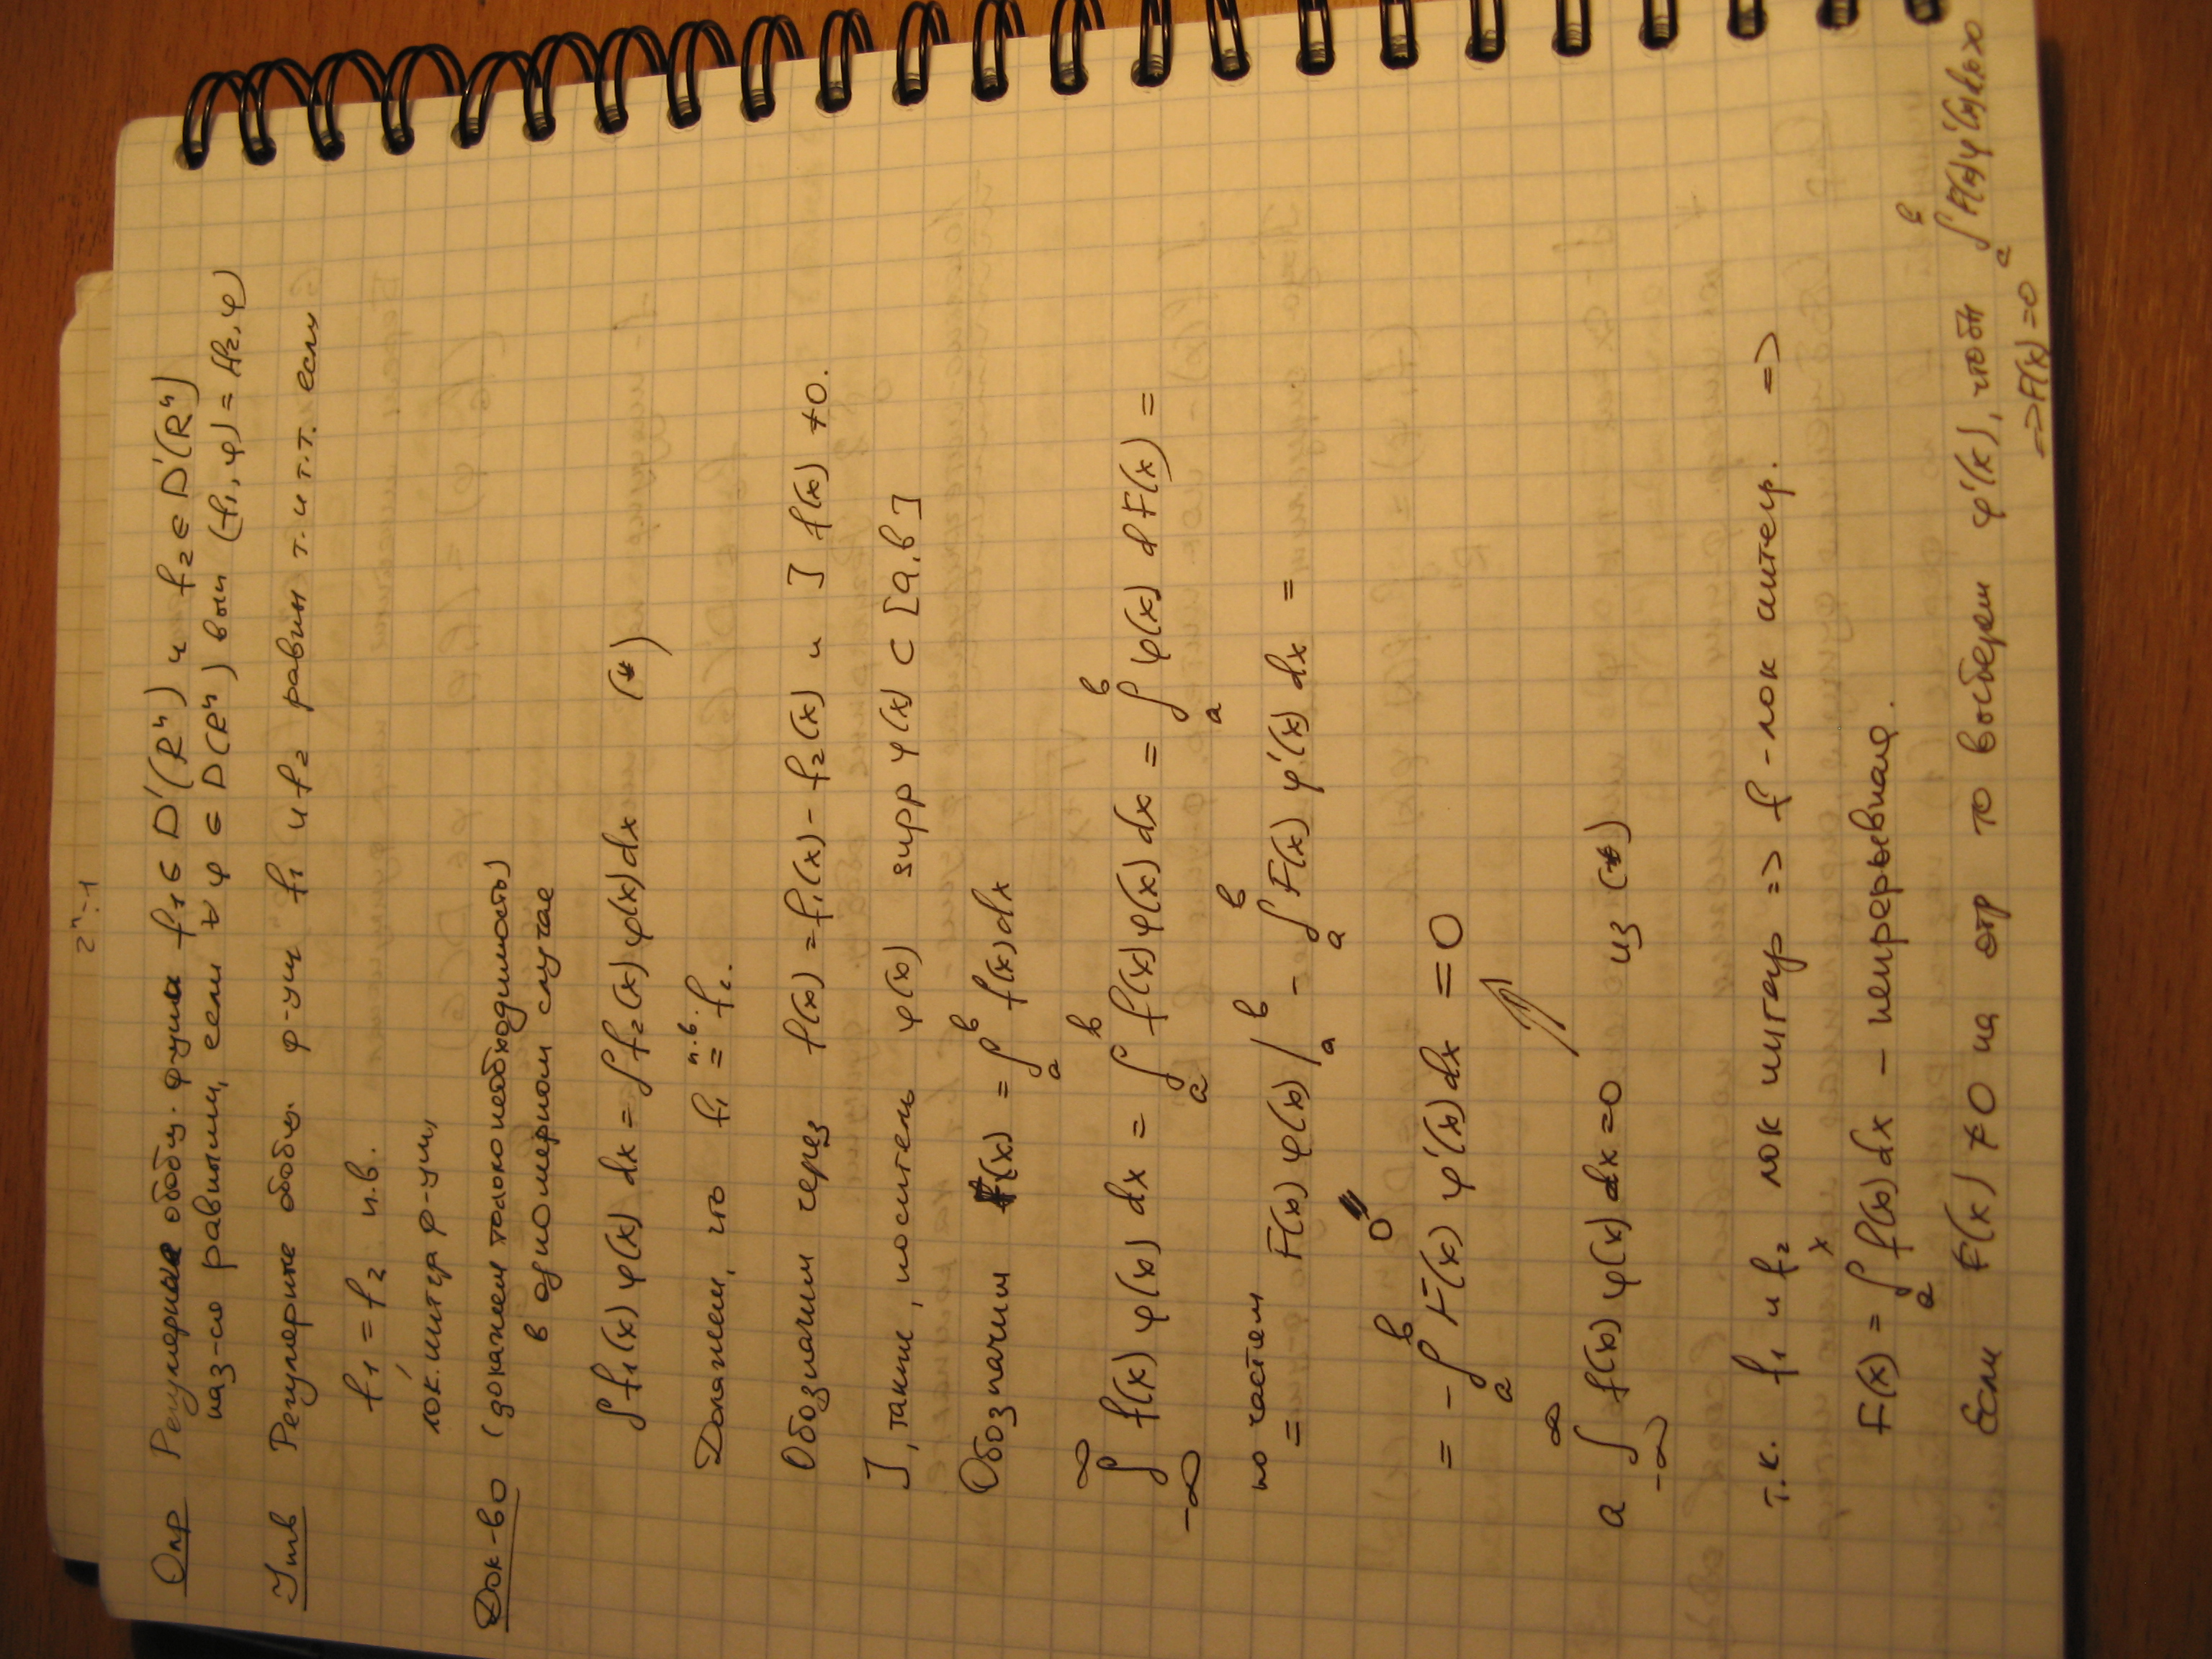 2ⁿ-1
Опр Регулярные обобщ. ф-ции f₁ ∈ D'(Rⁿ) и f₂ ∈ D'(Rⁿ)
наз-ся равными, если ∀ φ ∈ D(Rⁿ) вып (f₁, φ) = (f₂, φ)
Утв Регулярные обобщ. ф-ции f₁ и f₂ равны т. и т.т. если
f₁ = f₂ п.в.
лок. интгр ф-ции,
Док-во (докажем только необходимость)
в одномерном случае
∫ f₁(x) φ(x) dx = ∫ f₂(x) φ(x) dx (*)
Докажем, что f₁ п.в. = f₂.
Обозначим через f(x) = f₁(x) - f₂(x) и ] f(x) ≠ 0.
], такие, носитель φ(x) supp φ(x) ⊂ [a, b]
Обозначим F(x) = ∫ₐᵇ f(x) dx
∫₋∞^∞ f(x) φ(x) dx = ∫ₐᵇ f(x) φ(x) dx = ∫ₐᵇ φ(x) d F(x) =
по частям = F(x) φ(x) |ₐᵇ - ∫ₐᵇ F(x) φ'(x) dx =
0
= - ∫ₐᵇ F(x) φ'(x) dx = 0
⇑
а ∫₋∞^∞ f(x) φ(x) dx = 0 из (*)
т.к. f₁ и f₂ лок интгр => f - лок интегр. =>
F(x) = ∫ₐˣ f(x) dx - непрерывная.
Если F(x) ≠ 0 на отр то выберем φ'(x), чтобы ∫ₐᵇ F(x) φ'(x) dx ≠ 0
=> F(x) = 0